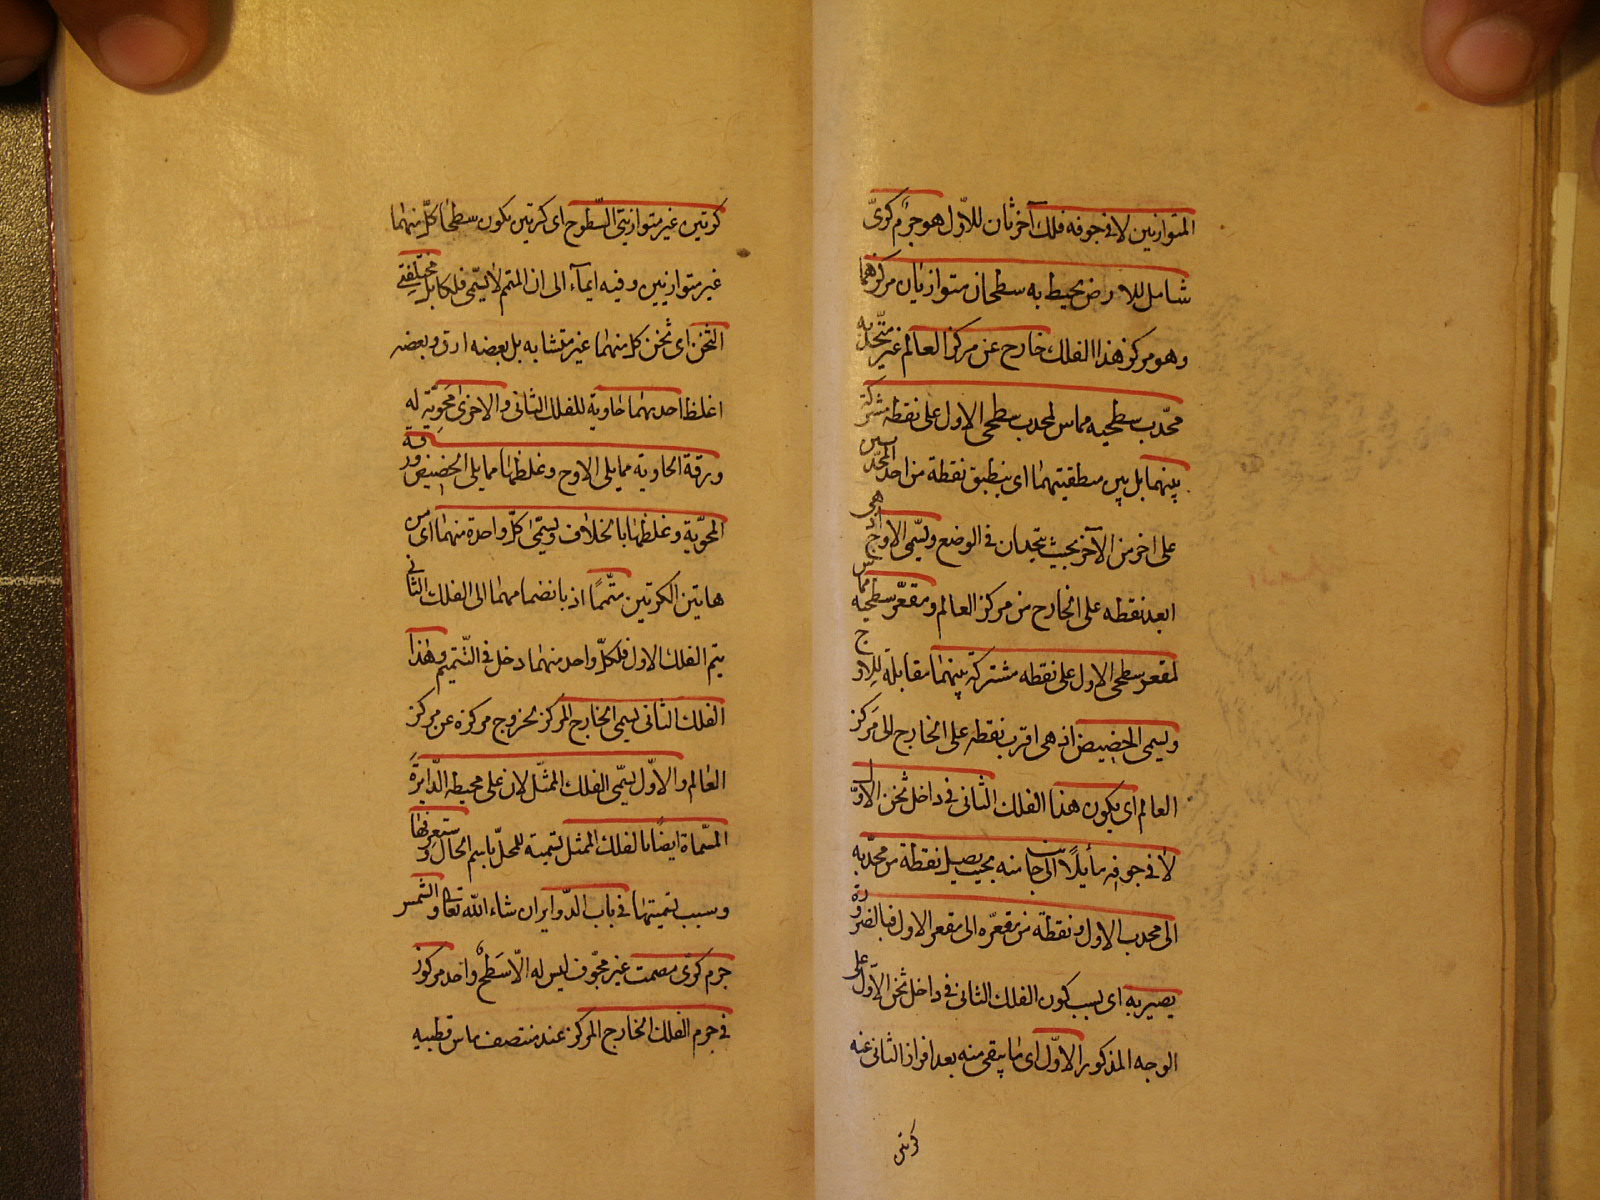 المتوازيين لا في جوفه فلك آخر ثان للاوّل هو جرم كرىّ
شامل للارض يحيط به سطحان متوازيان مركزهما
وهو مركز هذا الفلك خارج عن مركز العالم غير متّحد به
محدّب سطحيه مماس لمحدب سطحى الاول على نقطه مشتركة
بينهما بل بين منطقيتهما اى ينطبق نقطة من احد المحدّبين
على اخر من الآخر بحيث يتحدان فى الوضع ويسمّى الاوج اذ هى
ابعد نقطه على الخارح من مركز العالم ومقعّر سطحيه مماس
لمقعر سطحى الاول على نقطه مشتركة بينهما مقابلة للاوج
ويسمى الحضيض اذ هى اقرب نقطه على الخارح الى مركز
العالم اى يكون هذا الفلك الثانى فى داخل ثخن الاول
لا فى جوفه مأيلًا الى جانب منه بحيث يصل نقطة من محدّبه
الى محدب الاول ونقطة من مقعّره الى مقعر الاول فبالضرورة
يصير به اى بسبب كون الفلك الثانى فى داخل ثخن الاوّل على
الوجه المذكور الاوّل اى ما يبقى منه بعد افراز الثانى عنه
كرتين
كرتين غير متوازيتى السّطوح اى كرتين يكون سطحا كلّ منهما
غير متوازيين وفيه ايماء الى ان المتمم لا يسّمى فلكا بل مختلفتى
الثخن اى ثخن كل منهما غير متشابه بل بعضه ارق وبعضه
اغلظ احديهما حاوية للفلك الثانى والاخرى محويّة له
ورقة الحاوية مما يلى الاوج وغلظها مما يلى الحضيض ورقة
المحويّة وغلظها بالخلاف ويسمّى كلّ واحدة منهما اى من
هاتين الكرتين متّممًا اذ بانضمامهما الى الفلك الثانى
يتم الفلك الاول فلكلّ واحد منهما دخل فى التّتميم وهذا
الفلك الثانى يسمى الخارج المركز لخروج مركزه عن مركز
العالم والاوّل يسمّى الفلك الممثّل لان على محيطه الدّايرة
المسّماة ايضًا بالفلك الممثل تسمية للمحلّ باسم الحال وستعرفها
وسبب تسميتها فى باب الدّواير ان شاء اللّه تعالى والشمس
جرم كرىّ مصمت غير مجّوف ليس له الّا سَطحٌ واحد مركوز
فى جرم الفلك الخارج المركز عند منتصف ما بين قطبيه